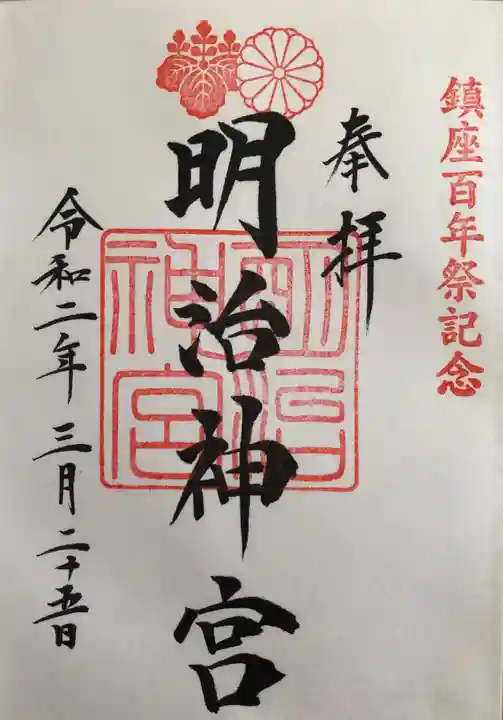 鎮座百年祭記念
奉拝
明治神宮
明治神宮
令和二年三月二十五日